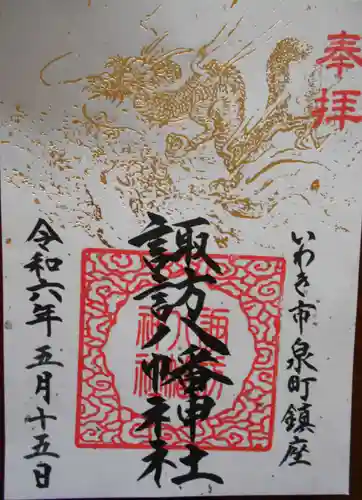 奉拝
いわき市泉町鎮座
諏訪八幡神社
令和六年五月十五日